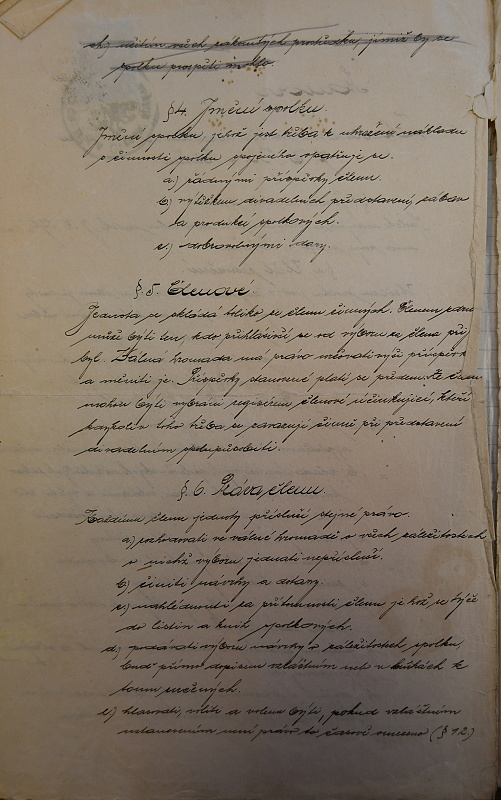 ch) užitím všech zákonitých prostředků, jimiž by se
spolku prospěti mohlo.
§ 4. Jmění spolku.
Jmění spolku, jehož jest třeba k uhražení nákladu
s činností spolku spojeného opatřuje se.
a.) řádnými příspěvky členů.
b) výtěžkem divadelních představení, zábav
a produkcí spolkových.
c) dobrovolnými dary.
§ 5. Členové.
Jednota se skládá toliko ze členů činných. Členem
může býti ten, kdo přihlásivši se od výboru za člena při
byl. Valná hromada má právo určovati výši příspěvků
a měniti je. Příspěvky stanovené platí se předem. Ze členů
mohou býti vybráni režisérem, členové účinkující, kteří
kdykoliv toho třeba se zavazují činně při představení
divadelním spolupůsobiti.
§ 6. Práva členů.
Každému členu jednoty přísluší stejné právo.
a.) rozhodovati ve valné hromadě o všech záležitostech
o nichž výboru jednati nepřísluší.
b) činiti návrhy a dotazy.
c) nahlédnouti za přítomnosti členu jehož se týče
do listin a knih spolkových.
d) podávati výboru návrhy o záležitostech spolku,
buď přímo dopisem zvláštním neb v knihách k
tomu určených.
e) hlasovati, volit a volenu býti, pokud zvláštním
ustanovením není právo to časově omezeno (§ 12.)